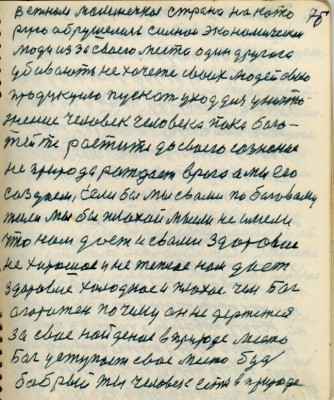 75
Вьетнам маленечкая страна на кото
рую обрушелись сильнои экономически
люди из за своего места один другого
убивають не хочете своих людей свою
продукцию пускать уход для уничто-
жение человек человека пока бога-
тейте растите до своего сознание
не природа рождает врага а мы его
создаем, если бы мы с вами по боговому
жили мы бы плохой мысли не имели
что нам дает и с вами здоровие
не хорошое и не теплое нам дает
здоровие холодное и плохое чем Бог
огорожен почему он не держется
за свое найденое в природе место
Бог уступает свое место будь
добрый ты человек есть в природе